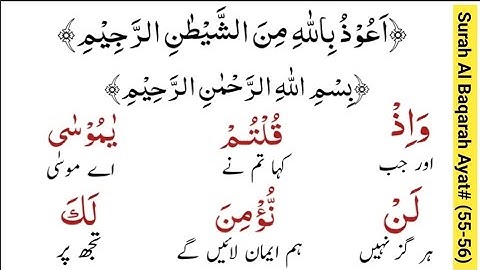 ﴿اَعُوْذُ بِاللّٰهِ مِنَ الشَّيْطٰنِ الرَّجِيْمِ﴾
﴿بِسْمِ اللّٰهِ الرَّحْمٰنِ الرَّحِيْمِ﴾
وَاِذْ قُلْتُمْ يٰمُوْسٰى
اور جب کہا تم نے اے موسٰی
لَنْ نُّؤْمِنَ لَكَ
ہر گز نہیں ہم ایمان لائیں گے تجھ پر
Surah Al Baqarah Ayat# (55-56)